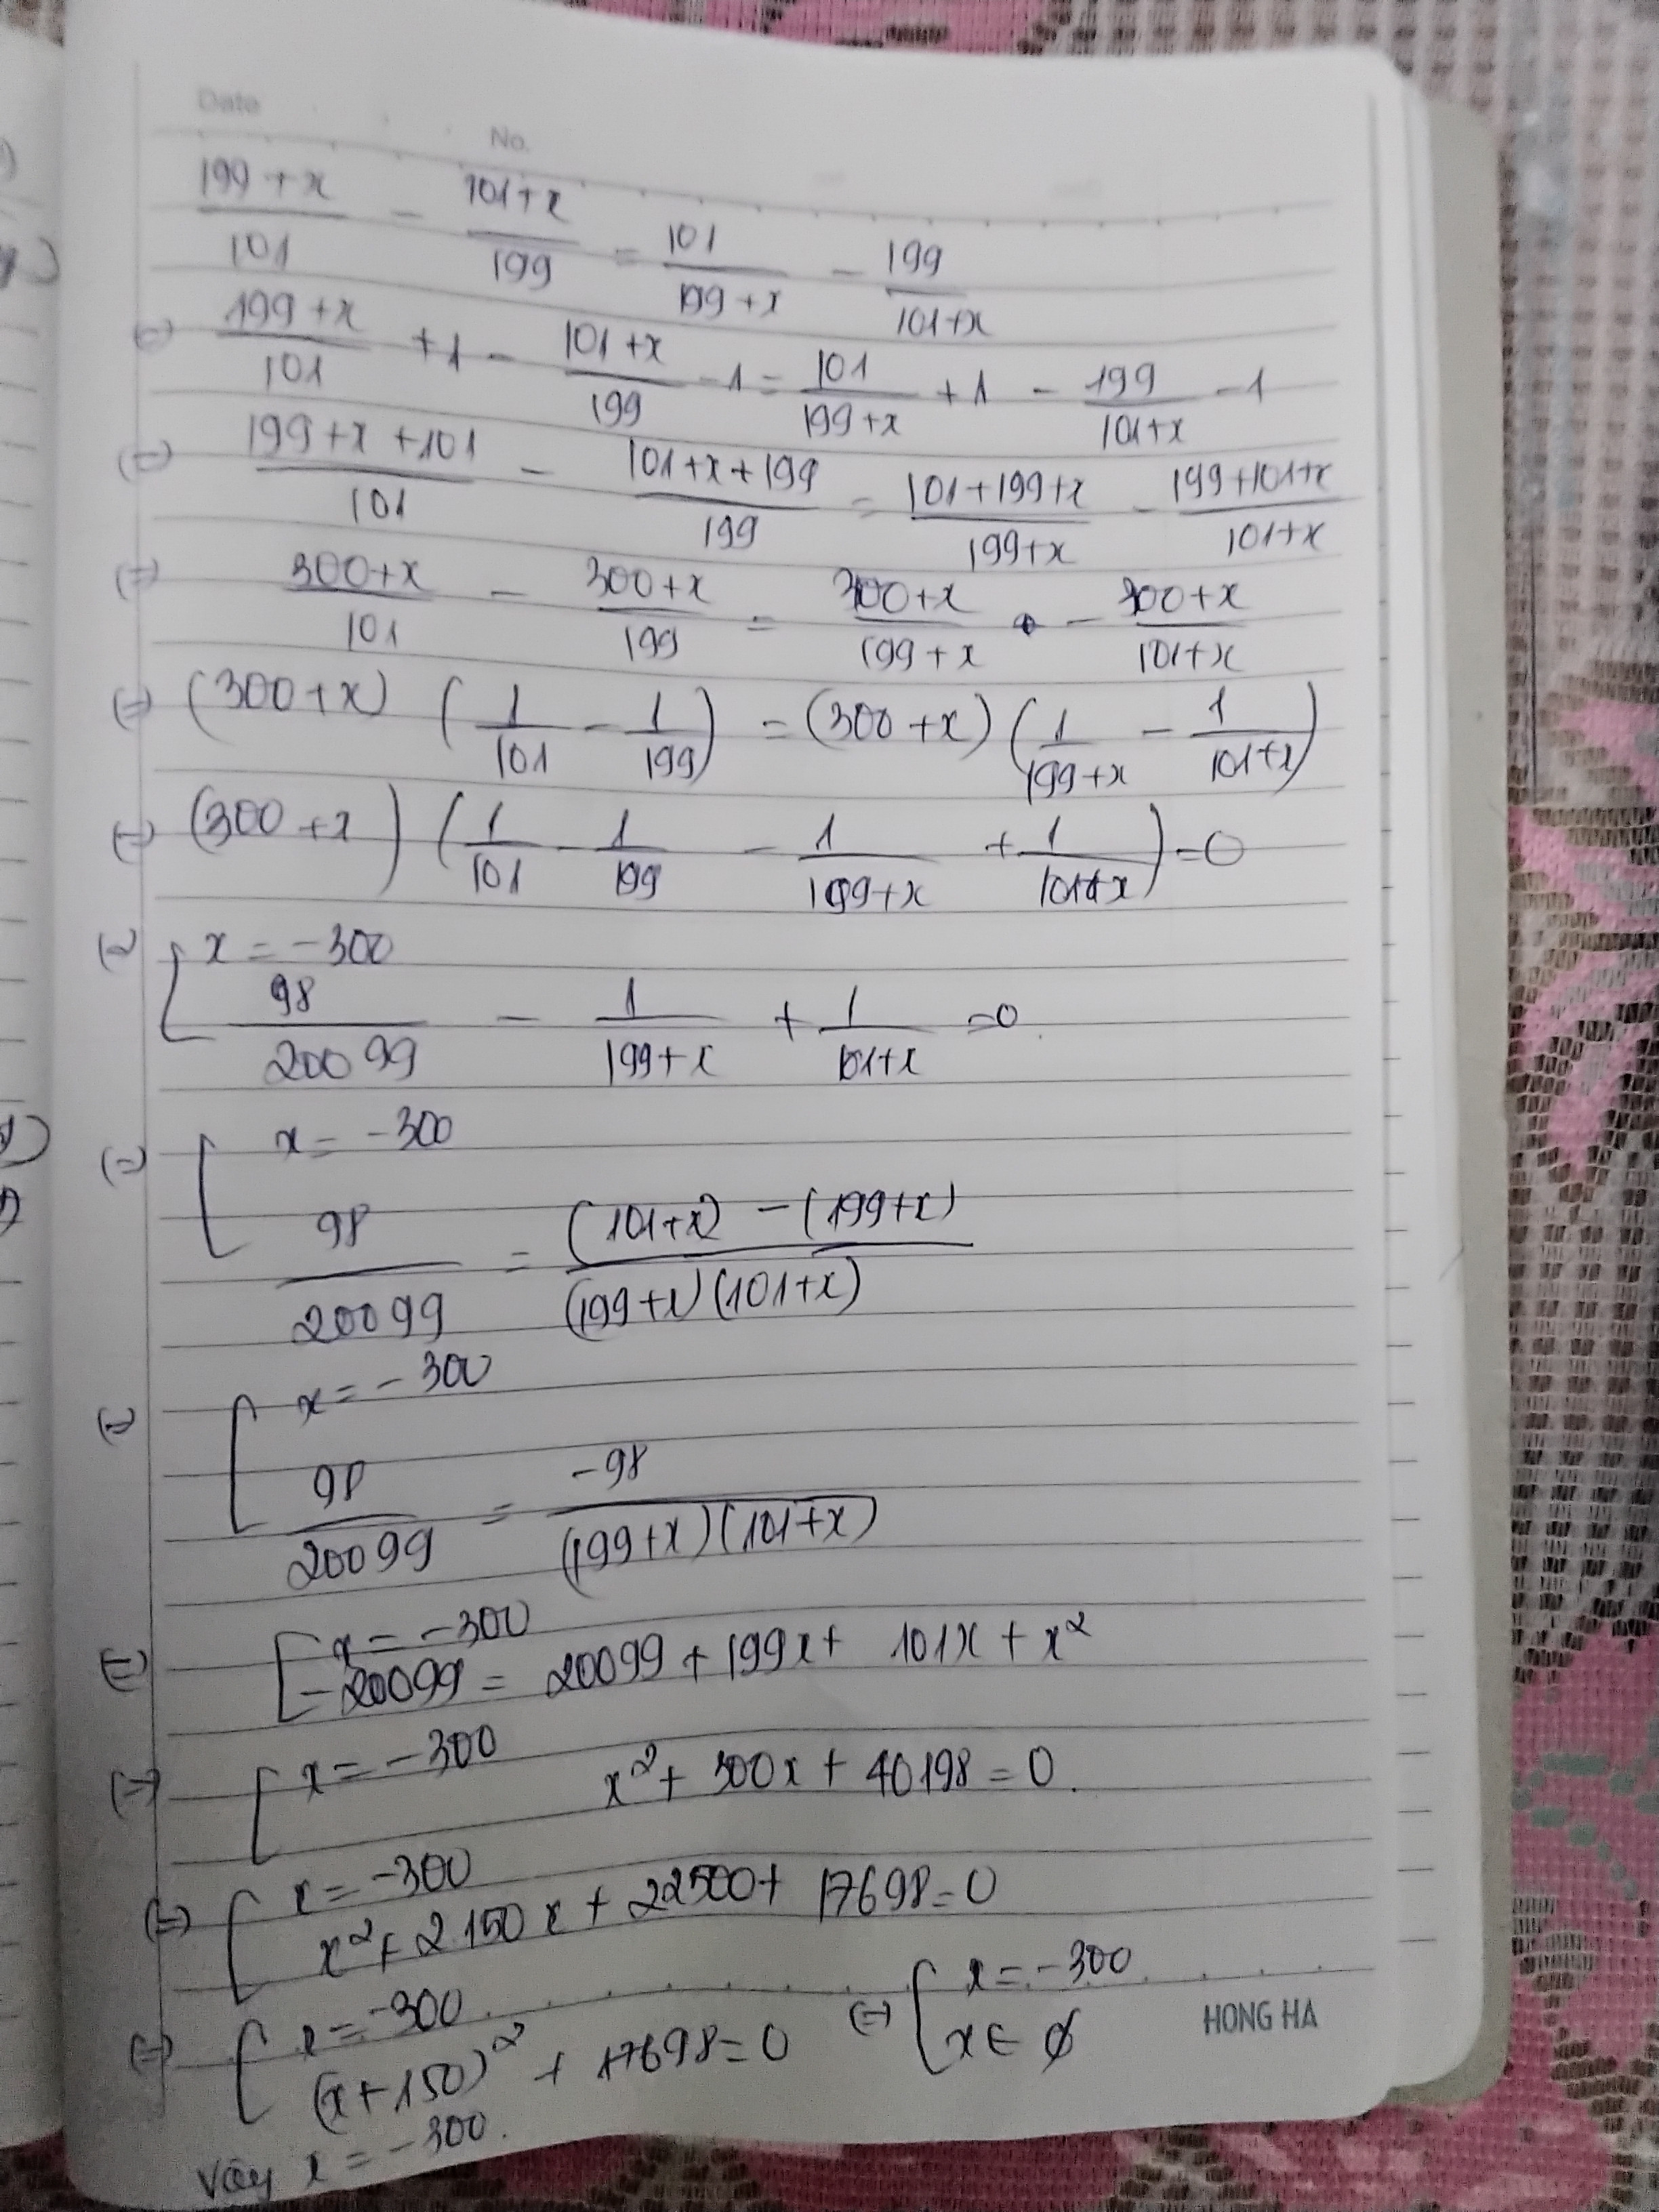 Date
No.
(199+x)/101 - (101+x)/199 = 101/(199+x) - 199/(101+x)
(=) (199+x)/101 + 1 - (101+x)/199 - 1 = 101/(199+x) + 1 - 199/(101+x) - 1
(=) (199+x+101)/101 - (101+x+199)/199 = (101+199+x)/(199+x) - (199+101+x)/(101+x)
(=) (300+x)/101 - (300+x)/199 = (300+x)/(199+x) - (300+x)/(101+x)
(=) (300+x) (1/101 - 1/199) = (300+x) (1/(199+x) - 1/(101+x))
(=) (300+x) (1/101 - 1/199 - 1/(199+x) + 1/(101+x)) = 0
(=) [ x = -300
98/20099 - 1/(199+x) + 1/(101+x) = 0
(=) [ x = -300
98/20099 = ((101+x) - (199+x))/((199+x)(101+x))
(=) [ x = -300
98/20099 = -98/((199+x)(101+x))
(=) [ x = -300
-20099 = 20099 + 199x + 101x + x²
(=) [ x = -300
x² + 300x + 40198 = 0.
(=) [ x = -300
x² + 2.150x + 22500 + 17698 = 0
(=) [ x = -300
(x+150)² + 17698 = 0 (=) [ x = -300
x ∈ ∅
HONG HA
Vậy x = -300.